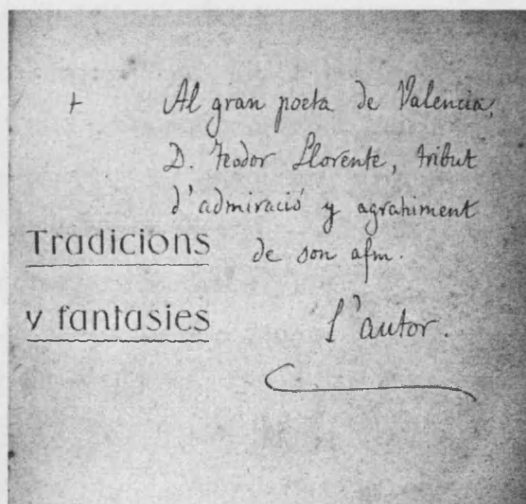 + Al gran poeta de Valencia,
D. Teodor Llorente, tribut
d'admiració y agrahiment
de son afm.
L'autor.
Tradicions
y fantasies